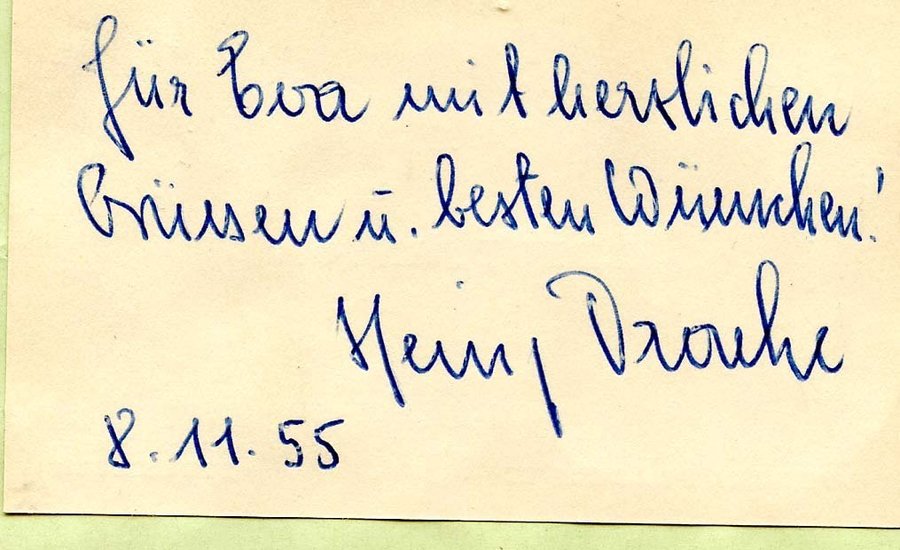 für Eva mit herzlichen
Grüssen u. besten Wünschen!
Heinz Drache
8.11.55